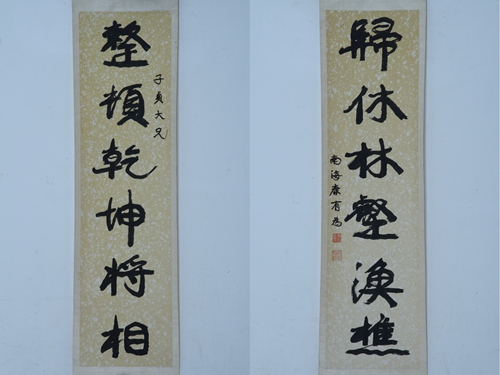 整頓乾坤將相
子貞大兄
歸休林壑漁樵
南海康有為